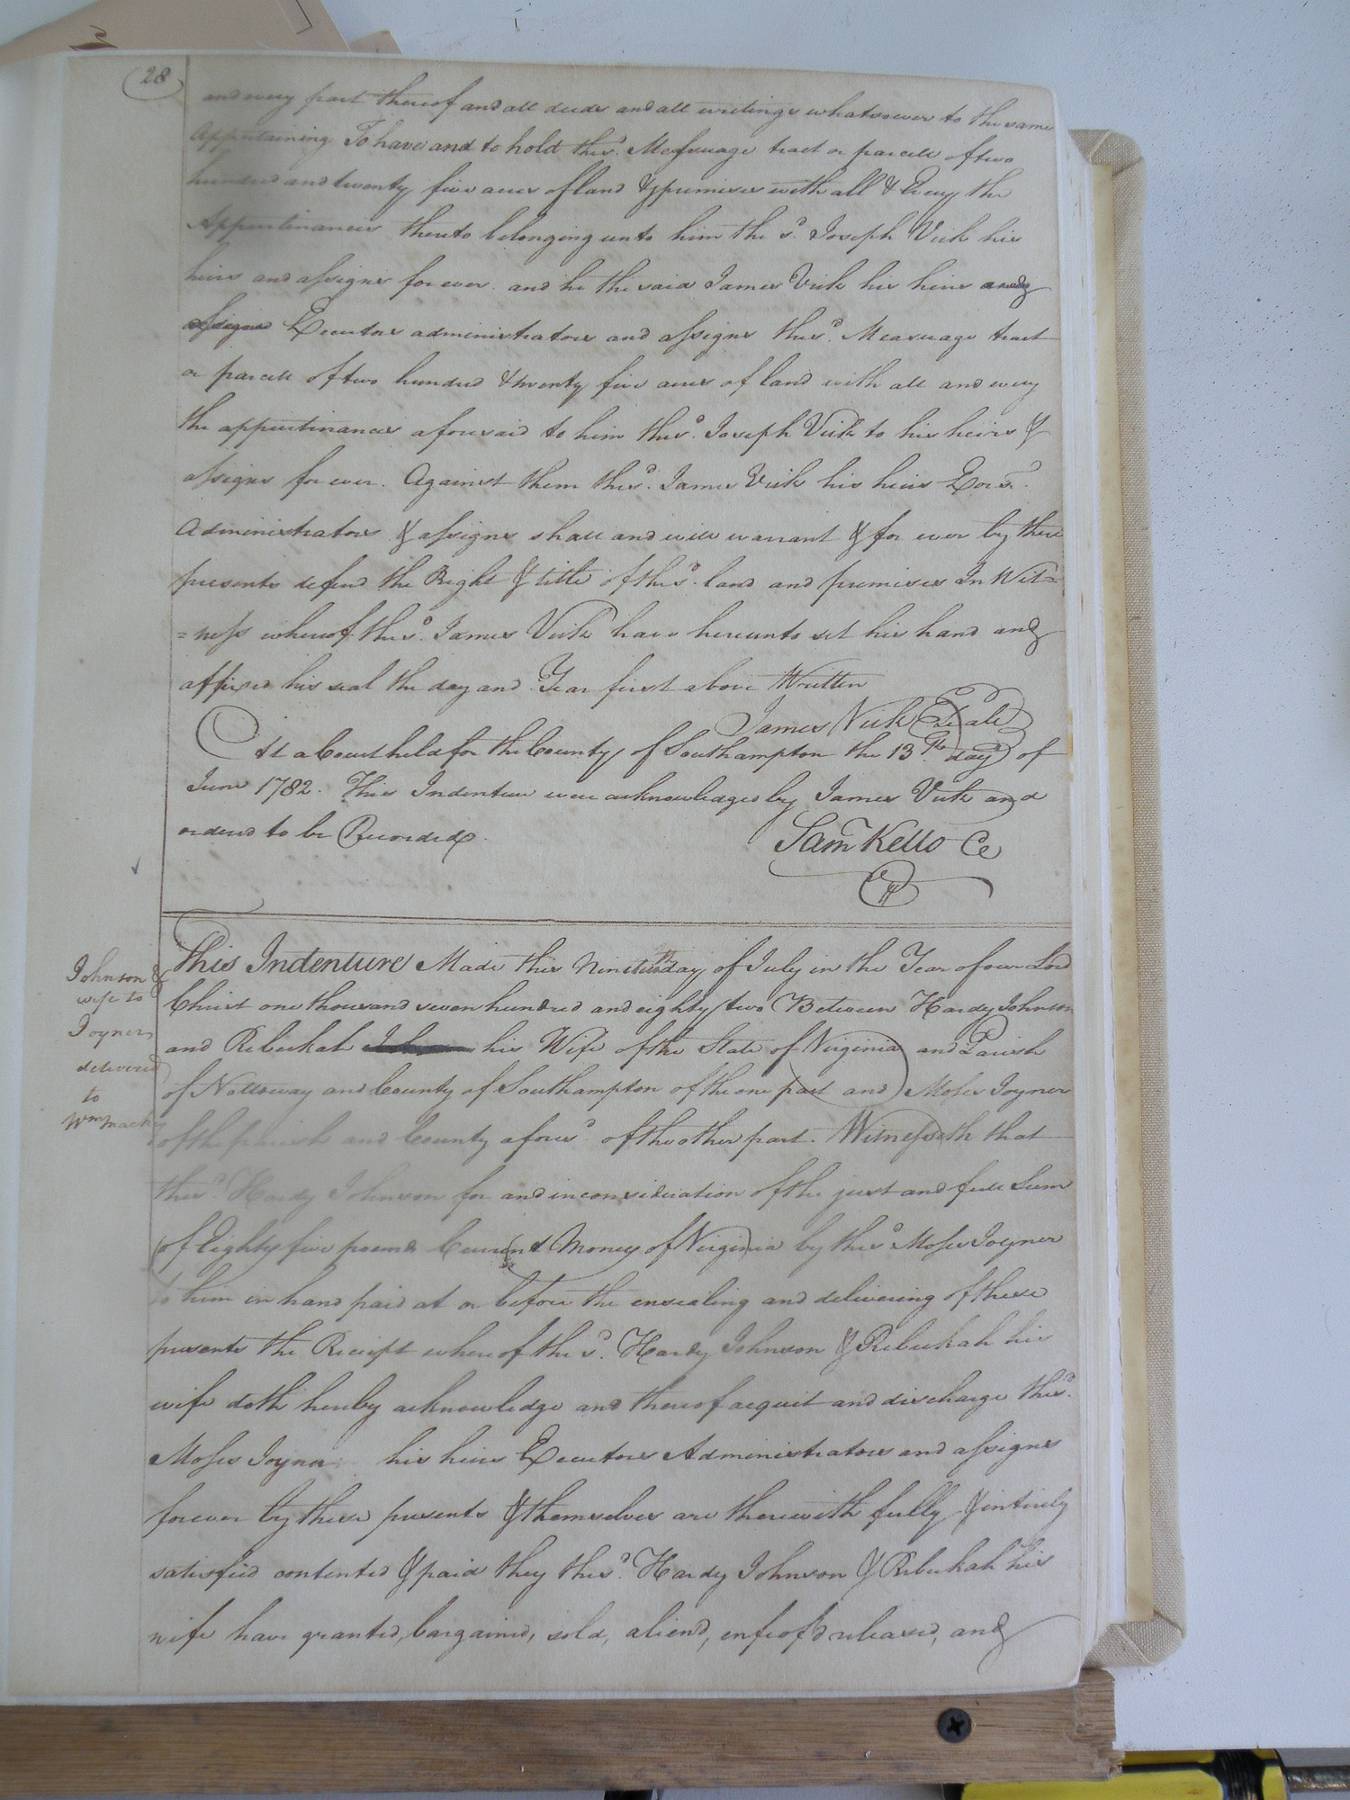 28
and every part thereof and all deeds and all writings whatsoever to the same
Appertaining To have and to hold the sd. Messuage tract or parcell of two
hundred and twenty five acres of land & premises with all & Every the
Appertinances thereto belonging unto him the sd. Joseph Vick his
heirs and assigns for ever. and he the said James Vick his heirs and
assigns Executors administrators and assigns the sd. Messuage tract
or parcell of two hundred & twenty five acres of land with all and every
the appertinances aforesaid to him the sd. Joseph Vick to his heirs &
assigns for ever. Against them the sd. James Vick his heirs Exors.
Administrators & assigns shall and will warrant & for ever by these
presents defend the Right & title of the sd. land and premises In Wit=
=ness whereof the sd. James Vick have hereunto set his hand and
affixed his seal the day and Year first above Written
James Vick (Seal)
At a Court held for the County of Southampton the 13th. day of
June 1782. This Indenture were acknowledged by James Vick and
orderd to be Recorded.
Sam Kello Cc
Johnson &
wife to
Joyner
delivered
to
Wm Mack
This Indenture Made this day of July in the Year of our Lord
Christ one thousand seven hundred and eighty two Between Hardy Johnson
and Rebeckah his Wife of the State of Virginia and Parish
of Nottoway and County of Southampton of the one part and Moses Joyner
of the parish and County afores.d of the other part. Witnesseth that
the sd. Hardy Johnson for and in consideration of the just and full Sum
of Eighty five pound Current Money of Virginia by the sd Moses Joyner
to him in hand paid at or before the ensealing and delivering of these
presents the Receipt whereof the sd. Hardy Johnson & Rebeckah his
wife doth hereby acknowledge and thereof acquit and discharge the sd.
Moses Joyner his heirs Executors Administrators and assigns
forever by these presents & themselves are therewith fully & intirely
satisfied contented & paid they the sd. Hardy Johnson & Rebeckah his
wife have granted, bargained, sold, aliend, enfeofd released, and